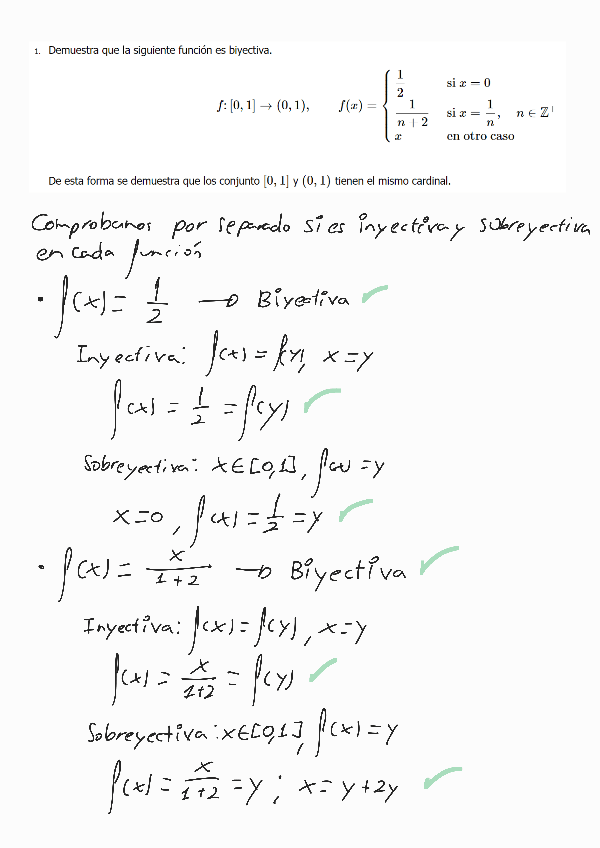 1. Demuestra que la siguiente función es biyectiva.
f: [0, 1] → (0, 1), f(x) = { 1/2 si x = 0
1/(n + 2) si x = 1/n, n ∈ ℤ⁺
x en otro caso
De esta forma se demuestra que los conjunto [0, 1] y (0, 1) tienen el mismo cardinal.
Comprobamos por separado si es inyectiva y sobreyectiva
en cada función
• f(x) = 1/2 → Biyectiva ✓
Inyectiva: f(x) = f(y), x = y
f(x) = 1/2 = f(y) ✓
Sobreyectiva: x ∈ [0,1], f(x) = y
x = 0, f(x) = 1/2 = y ✓
• f(x) = x/(1+2) → Biyectiva ✓
Inyectiva: f(x) = f(y), x = y
f(x) = x/(1+2) = f(y) ✓
Sobreyectiva: x ∈ [0,1], f(x) = y
f(x) = x/(1+2) = y ; x = y + 2y ✓